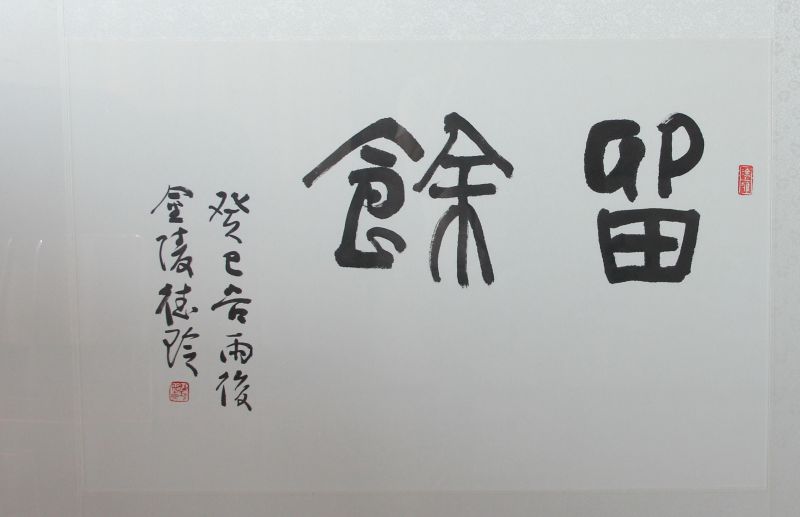 留餘
癸巳谷雨後
金陵德玲